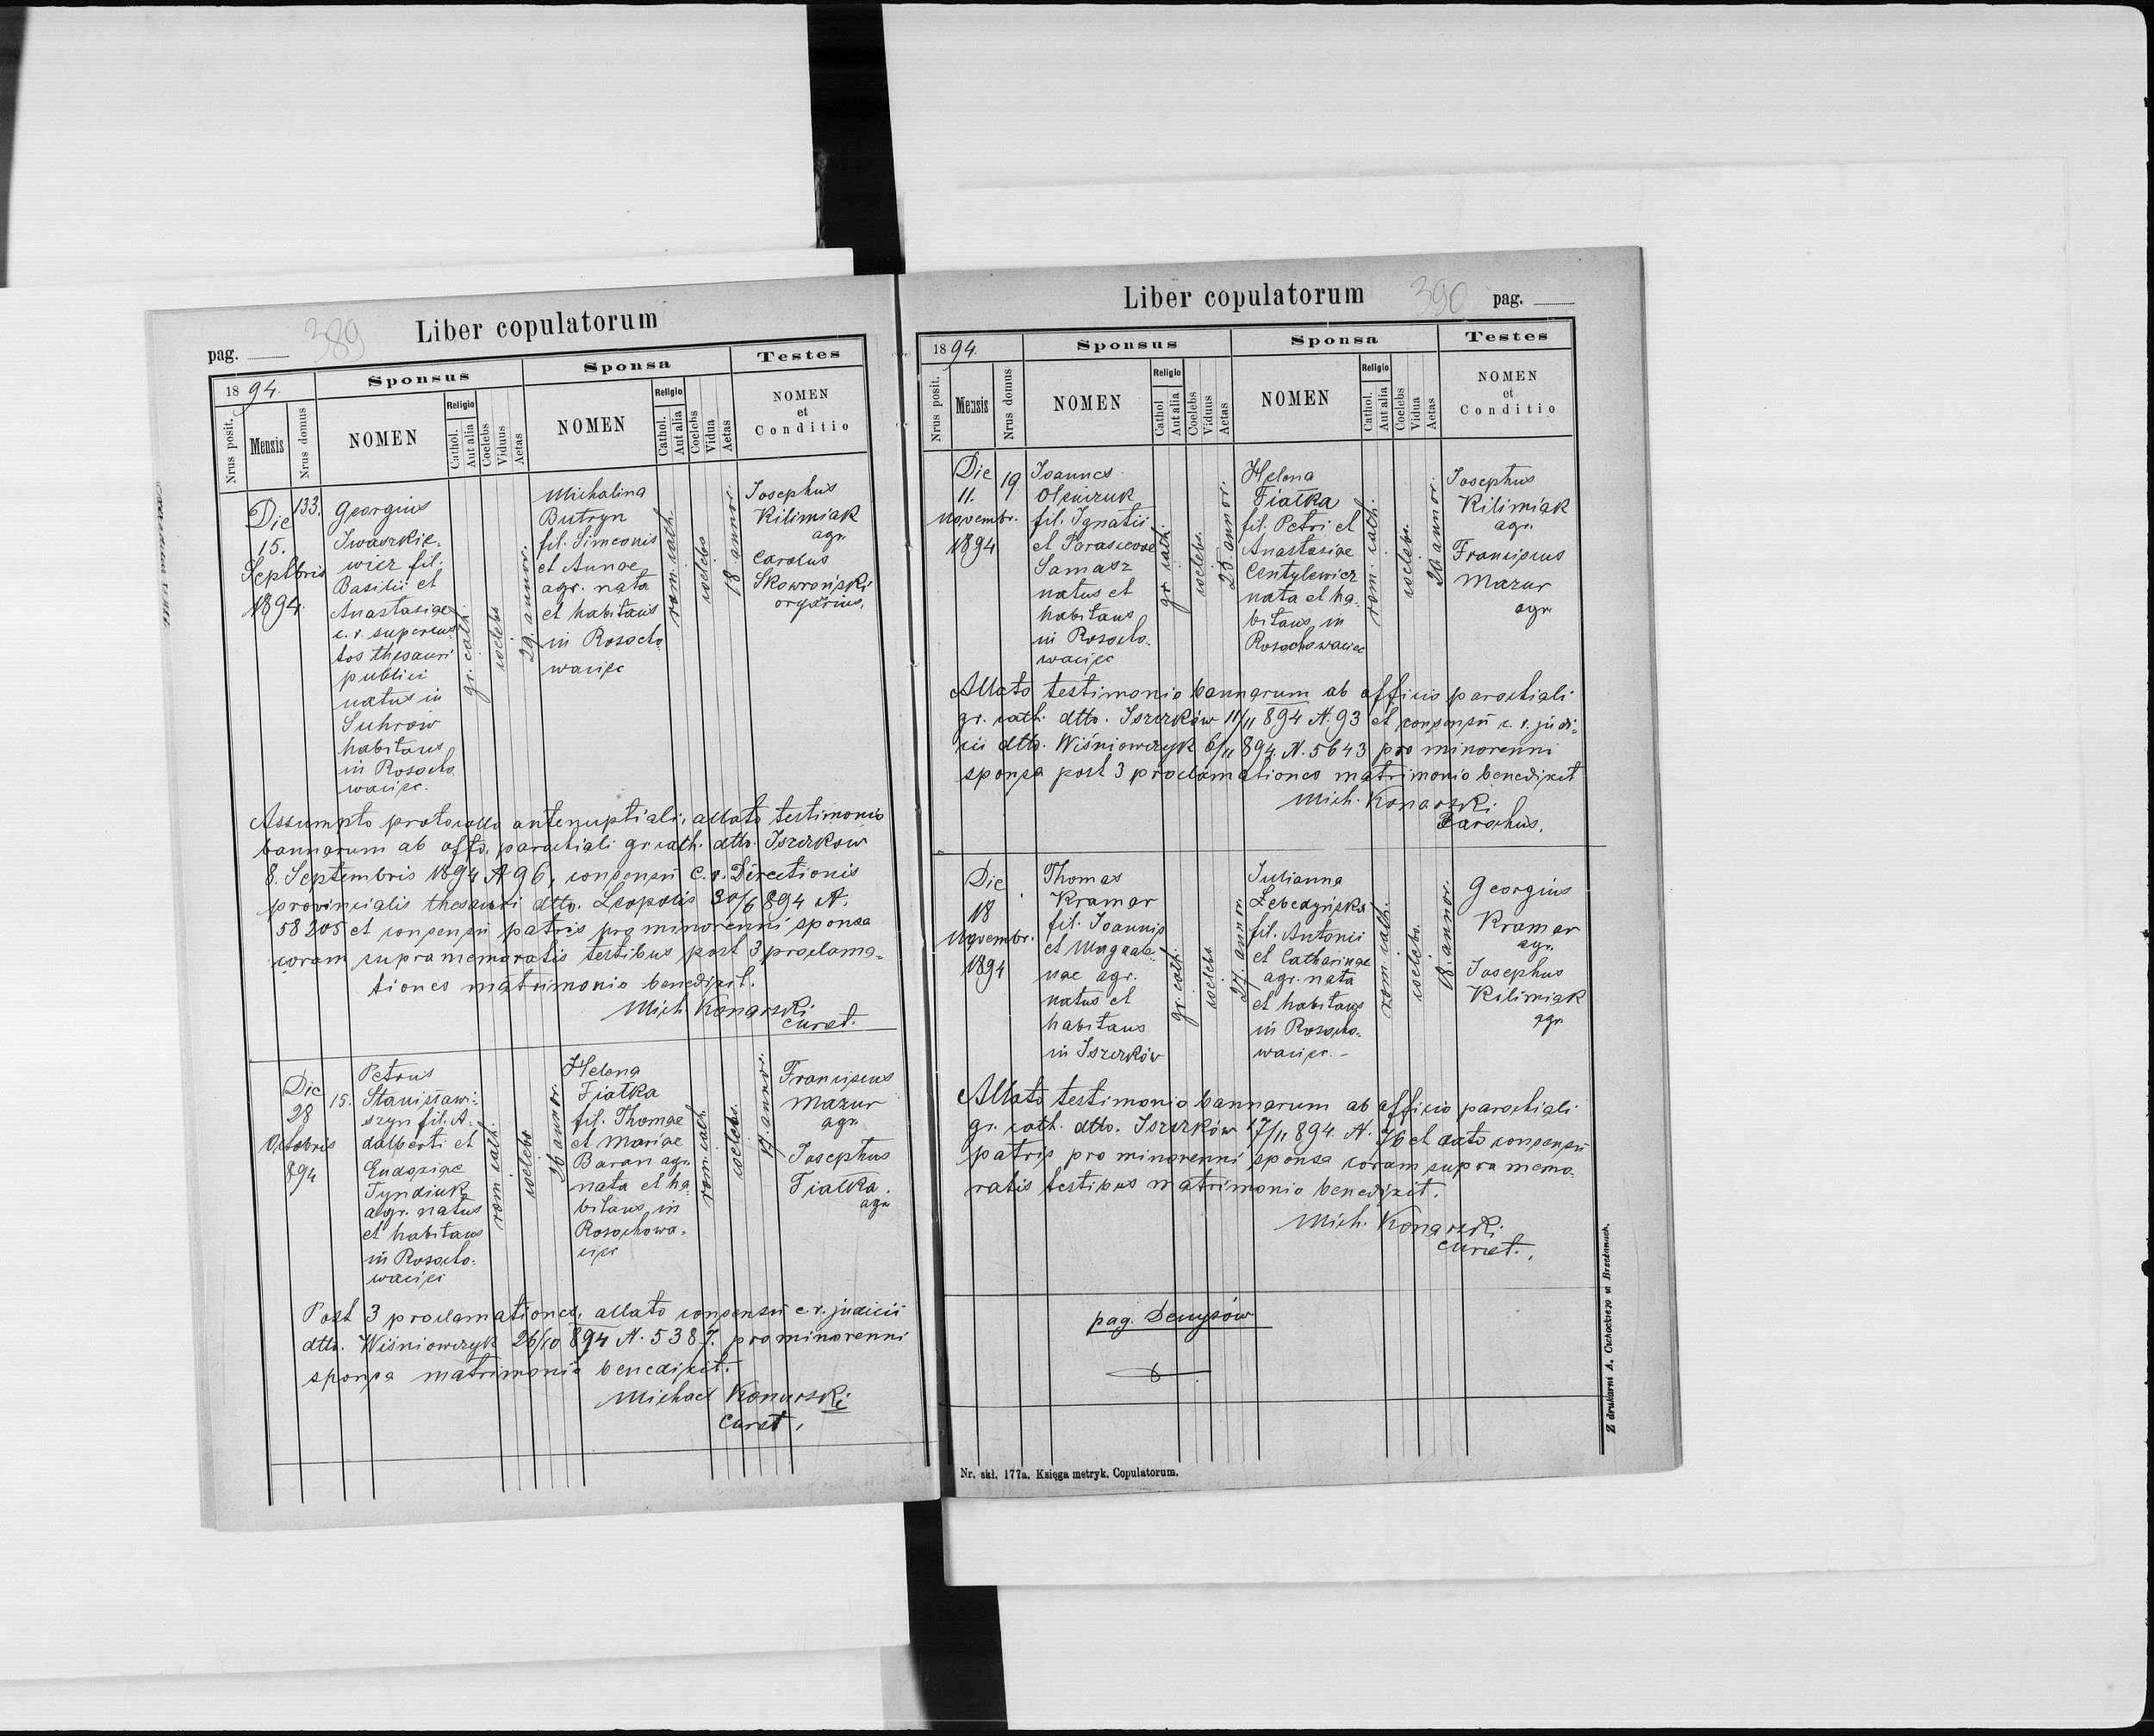 pag. 389
Liber copulatorum
1894.
Sponsus
Sponsa
Testes
Nrus posit.
Mensis
Nrus domus
NOMEN
Religio
Cathol.
Aut alia
Coelebs
Viduus
Aetas
NOMEN
Religio
Cathol.
Aut alia
Coelebs
Vidua
Aetas
NOMEN
et
Conditio
Die
15.
Septbris
1894.
133.
Georgius
Iwaszkie-
wicz fil.
Basilii et
Anastasiae
c. r. supercus
tos thesauri
publici
natus in
Suhrow
habitans
in Rosocho
waciec.
gr. cath.
coelebs
29. annor.
Michalina
Butryn
fil. Simeonis
et Annae
agr. nata
et habitans
in Rosocho
waciec
rom. cath.
coelebs
18 annor.
Josephus
Kilimiak
agr.
Carolus
Skowroński
orgarius.
Assumpto protocollo antenuptiali, allato testimonio
bannorum ab offo. parochiali gr. cath. dtto. Iszczków
8. Septembris 1894 N 96, consensu C. r. Directionis
provincialis thesauri dtto. Leopolis 30/6 894 N.
58205 et consensu patris pro minorenni sponsa
coram supra memoratis testibus post 3 proclama-
tiones matrimonio benedixit.
Mich. Konarski
curat.
Die
28
Octobris
894
15.
Petrus
Stanisławi-
szyn fil. A-
dalberti et
Eudoxiae
Tyndiuk
agr. natus
et habitans
in Rosocho-
waciec
rom. cath.
coelebs
36 annor.
Helena
Fiałka
fil. Thomae
et Mariae
Baran agr.
nata et ha-
bitans in
Rosochowa-
ciec
rom. cath.
coelebs.
19. annor.
Franciscus
Mazur
agr.
Josephus
Fiałka.
agr.
Post 3 proclamationes, allato consensu c. r. judicii
dtto. Wiśniowczyk 26/10 894 N. 5387. pro minorenni
sponsa matrimonio benedixit.
Michael Konarski
curat,
Liber copulatorum
390 pag.
1894.
Sponsus
Sponsa
Testes
Nrus posit.
Mensis
Nrus domus
NOMEN
Religio
Cathol
Aut alia
Coelebs
Viduus
Aetas
NOMEN
Religio
Cathol.
Aut alia
Coelebs
Vidua
Aetas
NOMEN
et
Conditio
Die
11.
Novembr.
1894
19
Joannes
Olejczuk
fil. Ignatii
et Parascevae
Samasz
natus et
habitans
in Rosocho-
waciec
gr cath.
coelebs.
25. annor.
Helena
Fiałka
fil. Petri et
Anastasiae
Centylewicz
nata et ha-
bitans in
Rosochowaciec
rom. cath.
coelebs.
20 annor.
Josephus
Kilimiak
agr.
Franciscus
Mazur
agr
Allato testimonio bannorum ab officio parochiali
gr. cath. dtto. Iszczków 11/11 894 N. 93 et consensu c. r. judi-
cii dtto. Wiśniowczyk 6/11 894 N. 5643 pro minorenni
sponsa post 3 proclamationes matrimonio benedixit
Mich. Konarski
Parochus.
Die
18
Novembr.
1894
Thomas
Kramar
fil. Joannis
et Magdale-
nae agr.
natus et
habitans
in Iszczków
gr. cath.
coelebs
27. annor.
Julianna
Lebedyńska
fil. Antonii
et Catharinae
agr. nata
et habitans
in Rosocho-
waciec.
rom. cath.
coelebs.
18. annor.
Georgius
Kramar
agr.
Josephus
Kilimiak
agr
Allato testimonio bannorum ab officio parochiali
gr. cath. dtto. Iszczków 17/11 894. N. 76 et dato consensu
patris pro minorenni sponsa coram supra memo-
ratis testibus matrimonio benedixit.
Mich. Konarski
curat.
pag. Denysów
Nr. skł. 177a. Księga metryk. Copulatorum.
Z drukarni A. Cuchockiego w Brzeżanach.